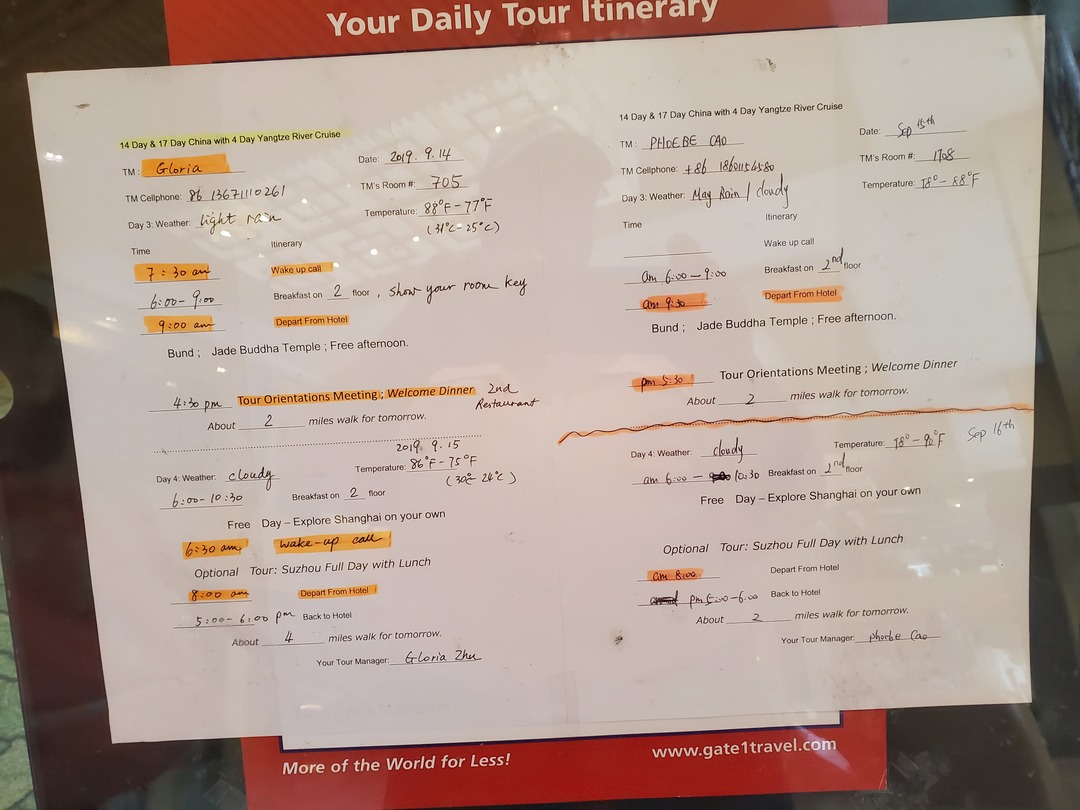 Your Daily Tour Itinerary
14 Day & 17 Day China with 4 Day Yangtze River Cruise
TM: Gloria
Date: 2019. 9. 14
TM Cellphone: 86 13671110261
TM's Room #: 705
Day 3: Weather: light rain
Temperature: 88°F-77°F
(31°C-25°C)
Time Itinerary
7:30 am Wake up call
6:00-9:00 Breakfast on 2 floor, show your room key
9:00 am Depart From Hotel
Bund ; Jade Buddha Temple ; Free afternoon.
4:30 pm Tour Orientations Meeting ; Welcome Dinner 2nd
Restaurant
About 2 miles walk for tomorrow.
2019. 9. 15
Day 4: Weather: cloudy
Temperature: 86°F-75°F
(30°- 24°C)
6:00-10:30 Breakfast on 2 floor
Free Day – Explore Shanghai on your own
6:30 am wake-up call
Optional Tour: Suzhou Full Day with Lunch
8:00 am Depart From Hotel
5:00-6:00 pm Back to Hotel
About 4 miles walk for tomorrow.
Your Tour Manager: Gloria Zhu
14 Day & 17 Day China with 4 Day Yangtze River Cruise
TM: PHOEBE CAO
Date: Sep 15th
TM Cellphone: +86
TM's Room #: 1708
Day 3: Weather: May Rain / cloudy
Temperature: 78°-88°F
Time Itinerary
Wake up call
am 6:00-9:00 Breakfast on 2nd floor
am 9:30 Depart From Hotel
Bund ; Jade Buddha Temple ; Free afternoon.
pm 5:30 Tour Orientations Meeting ; Welcome Dinner
About 2 miles walk for tomorrow.
Sep 16th
Day 4: Weather: cloudy
Temperature: 78°-90°F
am 6:00 - 10:30 Breakfast on 2nd floor
Free Day – Explore Shanghai on your own
Optional Tour: Suzhou Full Day with Lunch
am 8:00 Depart From Hotel
pm 5:00-6:00 Back to Hotel
About 2 miles walk for tomorrow.
Your Tour Manager: Phoebe Cao
More of the World for Less!
www.gate1travel.com